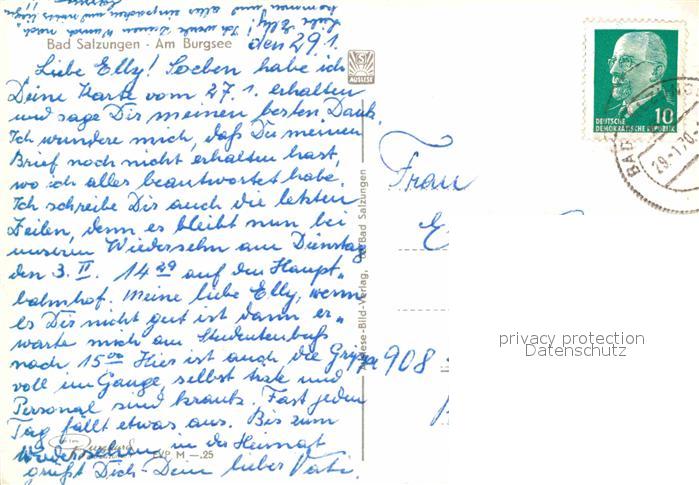 Liebe Elly! Ich werde Deinen Wunsch nach
und alles einpacken und nichts
Bad Salzungen - Am Burgsee
den 29.1.
Liebe Elly! Soeben habe ich
Deine Karte vom 27.1. erhalten
und sage Dir meinen besten Dank.
Ich wundere mich, daß Du meinen
Brief noch nicht erhalten hast,
wo ich alles beantwortet habe.
Ich schreibe Dir auch die letzten
Zeilen, denn es bleibt nun bei
unserem Wiedersehn am Dienstag
den 3. II. 14 29 auf dem Haupt-
bahnhof. Meine liebe Elly, wenn
es Dir nicht gut ist dann er-
warte mich am Studentenbuß
nach 15 00 Hier ist auch die Grippe
voll im Gange, selbst Ärzte und
Personal sind krank. Fast jeden
Tag fällt etwas aus. Bis zum
Wiedersehen in der Heimat
grüßt Dich Dein lieber Vati.
EVP M —.25
AUSLESE
Auslese-Bild-Verlag, Bad Salzungen
DEUTSCHE
DEMOKRATISCHE REPUBLIK
10
BAD
29.-1.70
Frau
E
908
privacy protection
Datenschutz